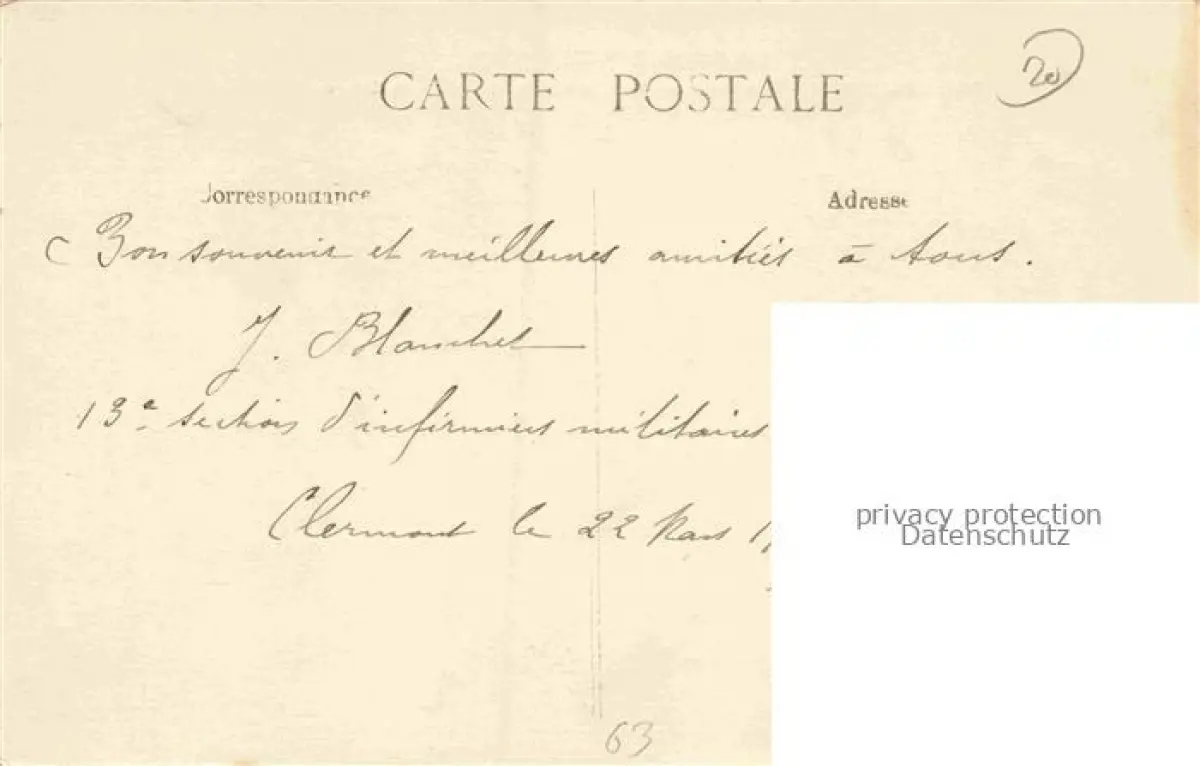 CARTE POSTALE
20
Correspondance
Adresse
Bon souvenir et meilleures amitiés à tous.
J. Blanchet
13e section d'infirmiers militaires
Clermont le 22 Mars 1
privacy protection
Datenschutz
63